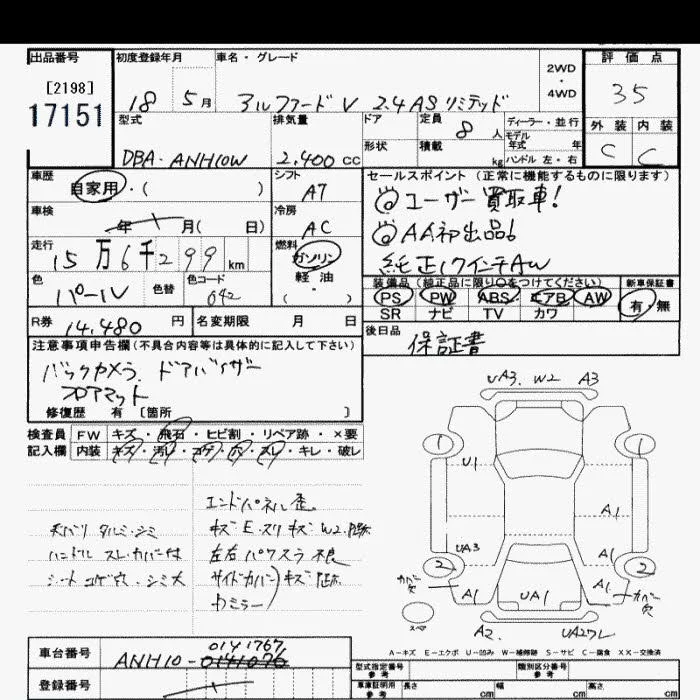 出品番号
[2198]
17151
初度登録年月
18 5月
車名・グレード
アルファードV 2.4 AS リミテッド
2WD
・
4WD
評価点
35
外装 内装
C C
型式
DBA-ANH10W
排気量
2.400cc
ドア
形状
定員 8人
積載 kg
ディーラー・並行
モデル年式 年
ハンドル 左・右
車歴
自家用・( )
シフト
A7
セールスポイント(正常に機能するものに限ります)
ユーザー買取車!
AA初出品
純正17インチAW
車検
年 月( 日)
冷房
AC
走行
15万6千299km
燃料
ガソリン
軽油
( )
色
パール
色替
色コード
042
装備品(純正品に限り○をつけてください)
PS PW ABS エアB AW
SR ナビ TV カワ
新車保証書
有・無
R券 14,480円
名変期限 月 日
後日品
保証書
注意事項申告欄(不具合内容等は具体的に記入して下さい)
バックカメラ、ドアバイザー
フロアマット
修復歴 有 [箇所 ]
検査員記入欄
FW キズ・飛石・ヒビ割・リペア跡・×要
内装 キズ・汚レ・コゲ・穴・スレ・キレ・破レ
天バリ タルミ・シミ
ハンドル スレ・カバー付
シート コゲ穴・シミ大
エンドパネル歪
キズ・E・スリキズ W2.
左右パワスラ不良
サイドカバー キズ
ミラー
UA3. W2 A3
1 1
U1
A1
UA3
A1
2 2
カバー欠
A1
UA1
A1
カバー欠
スペア
A2.
A-キズ E-エクボ U-凹み W-補修跡 S-サビ C-腐食 XX-交換済
車台番号
0141767
ANH10-0141076
登録番号
型式指定番号
参考
類別区分番号
参考
車庫証明用
参考
長さ cm 幅 cm 高さ cm